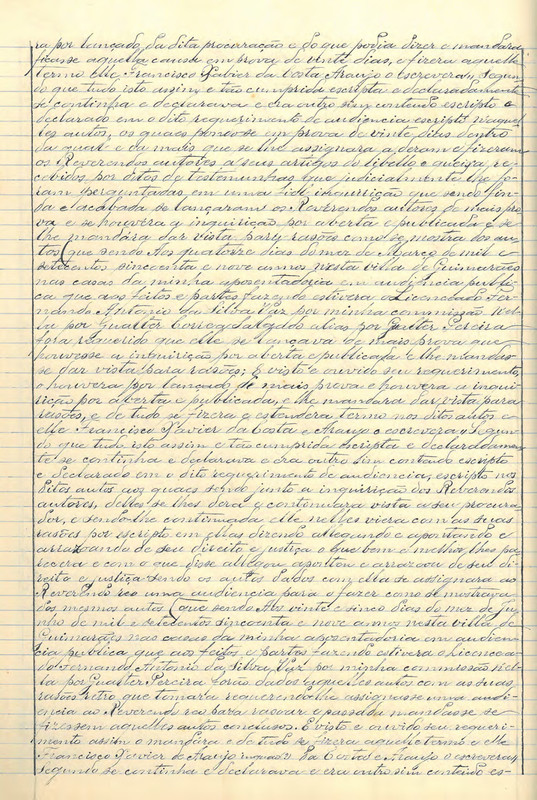 ra por lançado da dita procurração e do que podia dizer e mandara
ficasse aquella causa em prova de vinte dias, e fizera aquelle
termo elle, Francisco Xavier da Costa Araujo o escrevera, Segun-
do que tudo isto assim e tão cumprida escripta e declaradamente
se continha e declarava e era outro sim contendo escripto e
declarado em o dito requerimento de audiencia escripto n'aquel-
les autos, os quaes pondo-se em prova de vinte dias dentro
da qual e da mais que se lhe assignara, a deram e fizeram
os Reverendos autores a seus artigos do libello e queixa, re-
cebidos, por ditos de testemunhas que judicialmente lhe fo-
ram perguntadas em uma fiel inquirição que sendo fin-
da e acabada se lançaram os Reverendos autores de mais pro-
va e se houvera a inquirição por aberta e publicada e se
lhe mandára dar vista para rasões como se mostra dos au-
tos (que sendo Aos quatorze dias do mez de Março de mil e
setecentos sincoenta e nove annos nesta villa de Guimarães
nas casas da minha aposentadoria em audiencia publi-
ca que aos feitos e partes fazendo estivera o Licenciado Fer-
nando Antonio da Silva Vaz por minha commissão nel-
la por Gualter Correa Salgado alias por Gualter Pereira
fora requerido que elle se lançava de mais prova que
houvesse a inquirição por aberta e publicada e lhe mandas-
se dar vista para rasões; E visto e ouvido seu requerimento
o houvera por lançado de mais prova e houvera a inqui-
rição por aberta e publicada, e lhe mandara dar vista para
rasões, e de tudo se fizera e estendera termo nos ditos autos e
elle Francisco Xavier da Costa e Araujo o escrevera, Segun-
do que tudo isto assim e tão cumprida escripta e declaradamen-
te se continha e declarava e era outro sim contendo escripto
e declarado em o dito requerimento de audiencia, escripto nos
ditos autos aos quaes sendo junto a inquirição dos Reverendos
autores, delles se lhes dera e continuara vista a seu procura-
dor, e sendo-lhe continuada elle nelles viera com as suas
rasões por escripto em ellas dizendo allegando e apontando e
arrazoando de seu direito e justiça o que bem e melhor lhes pa-
recera e com o que disse allegou apontou e arrazoou de seu di-
reito e justiça sendo os autos dados com ella se assignara ao
Reverendo reo uma audiencia para o fazer como se mostrava
dos mesmos autos (que sendo Aos vinte e sinco dias do mez de ju-
nho de mil e setecentos sincoenta e nove annos nesta villa de
Guimarães nas casas da minha aposentadoria em audien-
cia publica que aos feitos, e partes fazendo estivera o Licencea-
do Fernando Antonio da Silva Vaz por minha commissão nel-
la por Gualter Pereira forão dados aquelles autos com as suas
rasões retro que tomara requerendo lhe assignasse uma audi-
encia ao Reverendo reo para rasoar e passada mandasse se
fizessem aquelles autos conclusos. E visto e ouvido seu requeri-
mento assim o mandara e de tudo se fizera aquelle termo e elle
Francisco Xavier de Araujo da Costa e Araujo o escrevera,
Segundo se continha e declarava e era outro sim contendo es-